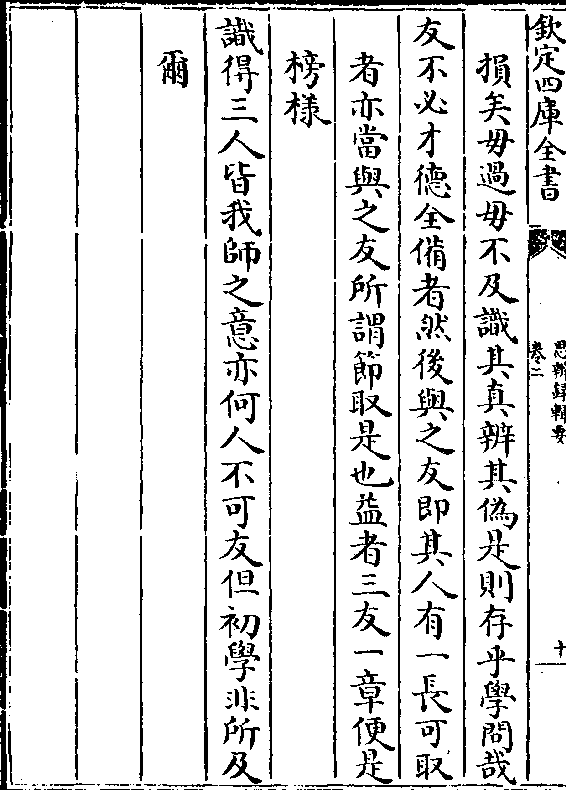 欽定四庫全書
思辨錄輯要
卷二
十
損矣毋過毋不及識其真辨其偽是則存乎學問哉
友不必才德全備者然後與之友即其人有一長可取
者亦當與之友所謂節取是也益者三友一章便是
榜樣
識得三人皆我師之意亦何人不可友但初學非所及
爾